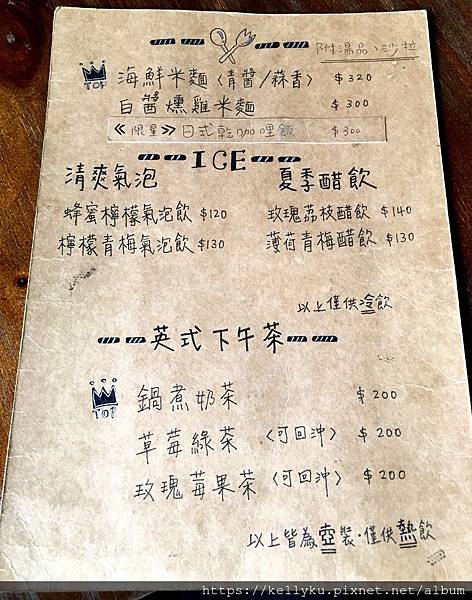 附湯品、沙拉
TOP 海鮮米麵〈青醬/蒜香〉 $320
白醬燻雞米麵 $300
《限量》日式乾咖哩飯 $300
ICE
清爽氣泡
蜂蜜檸檬氣泡飲 $120
檸檬青梅氣泡飲 $130
夏季醋飲
玫瑰荔枝醋飲 $140
薄荷青梅醋飲 $130
以上僅供冷飲
英式下午茶
TOP 鍋煮奶茶 $200
草莓綠茶 〈可回沖〉 $200
玫瑰莓果茶〈可回沖〉 $200
以上皆為壺裝·僅供熱飲
https://kellyku.pixnet.net/album